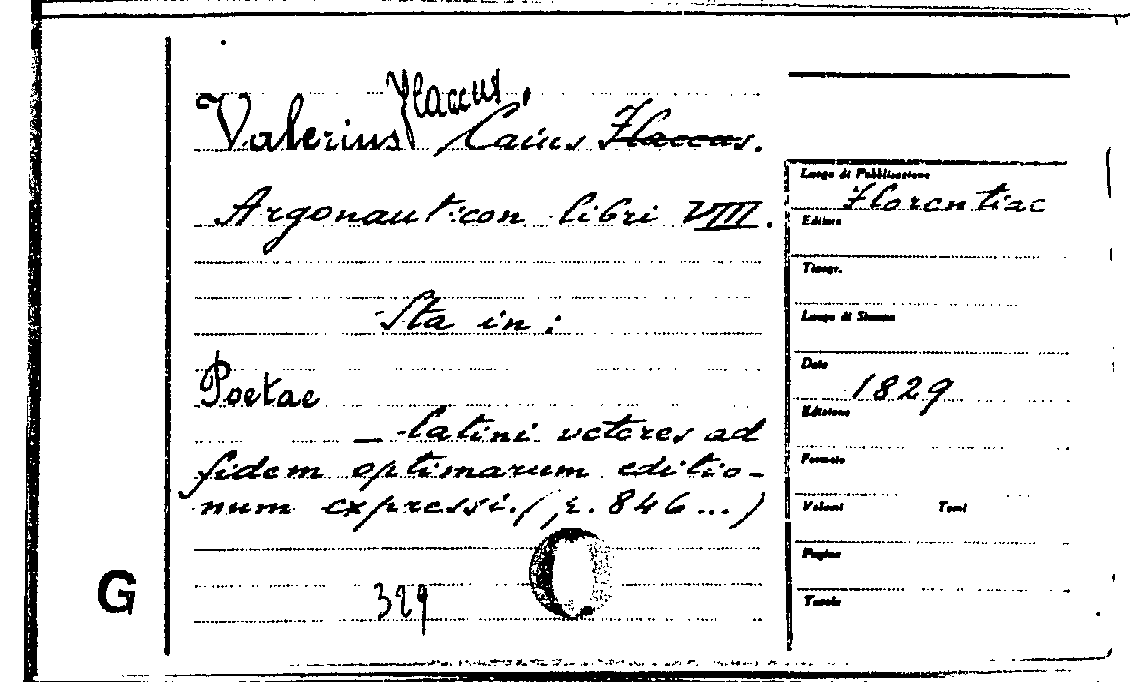 Valerius Flaccus, Caius Flaccus.
Argonauticon libri VIII.
Sta in:
Poetae
— latini veteres ad
fidem optimarum editio-
num expressi. (p. 846...)
329
G
Luogo di Pubblicazione
Florentiae
Editore
Tipogr.
Luogo di Stampa
Data
1829
Edizione
Formato
Volumi Tomi
Pagine
Tavole